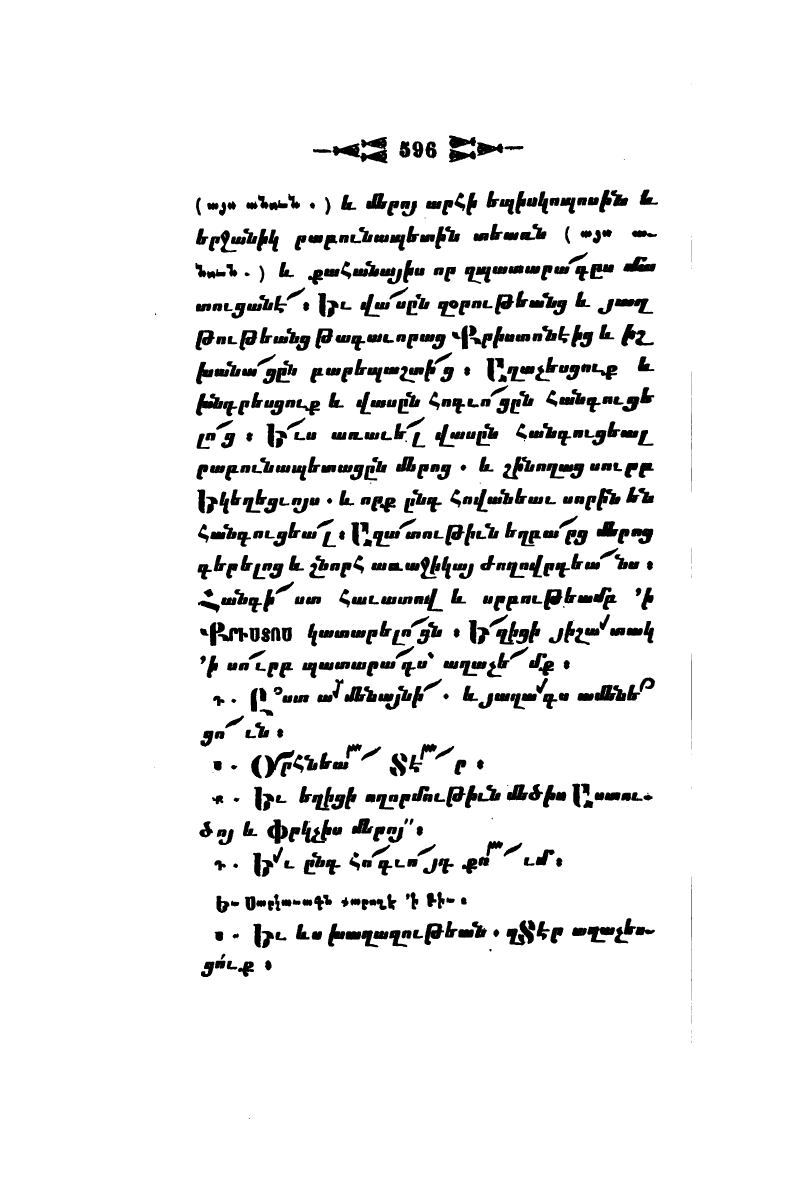 596
(այս անուն ․) և մերոյ արհի եպիսկոպոսին և
երջանիկ րաբունապետին տեառն (այս ա-
նուն ․) և քահանայիս որ զպատարա՜գըս մա
տուցանէ՜ ։ Եւ վա՜սըն զօրութեանց և յաղ
թութեանց թագաւորաց Քրիստոնէից և իշ
խանա՜ցըն բարեպաշտի՜ց ։ Աղաչեսցուք և
խնդրեսցուք և վասըն հոգւո՜ցըն հանգուցե
լո՜ց ։ Ե՜ւս առաւե՜լ վասըն հանգուցեալ
րաբունապետացըն մերոց ․ և շինողաց սուրբ
Եկեղեցւոյս ․ և որք ընդ հովանեաւ սորին են
հանգուցեա՜լ ։ Ազա՜տութիւն եղբա՜րց մերոց
գերելոց և շնորհ առաջիկայ ժողովրդեա՜նս ։
Հանգի՜ստ հաւատով և սրբութեամբ ՚ի
ՔՐԻՍՏՈՍ կատարելո՜ցն ։ Ե՜ղիցի յիշա՜տակ
՚ի սո՜ւրբ պատարա՜գս՝ աղաչե՜մք ։
Դ ․ Ըստ ամենայնի՜ ․ և յաղագս ամենե
ցո՜ւն ։
Ս ․ Օրհնեա՜ Տէ՜ր ։
Ք ․ Եւ եղիցի ողորմութիւն մեծիս Աստու-
ծոյ և փրկչիս մերոյ՛՛ ։
Դ ․ Եւ ընդ հո՜գւո՜յդ քո՜ւմ ։
Եւ Սարկաւագն քարոզէ ՚ի ԲԻ- ։
Ս ․ Եւ ևս խաղաղութեան ․ զՏէր աղաչես-
ցո՛ւք ։